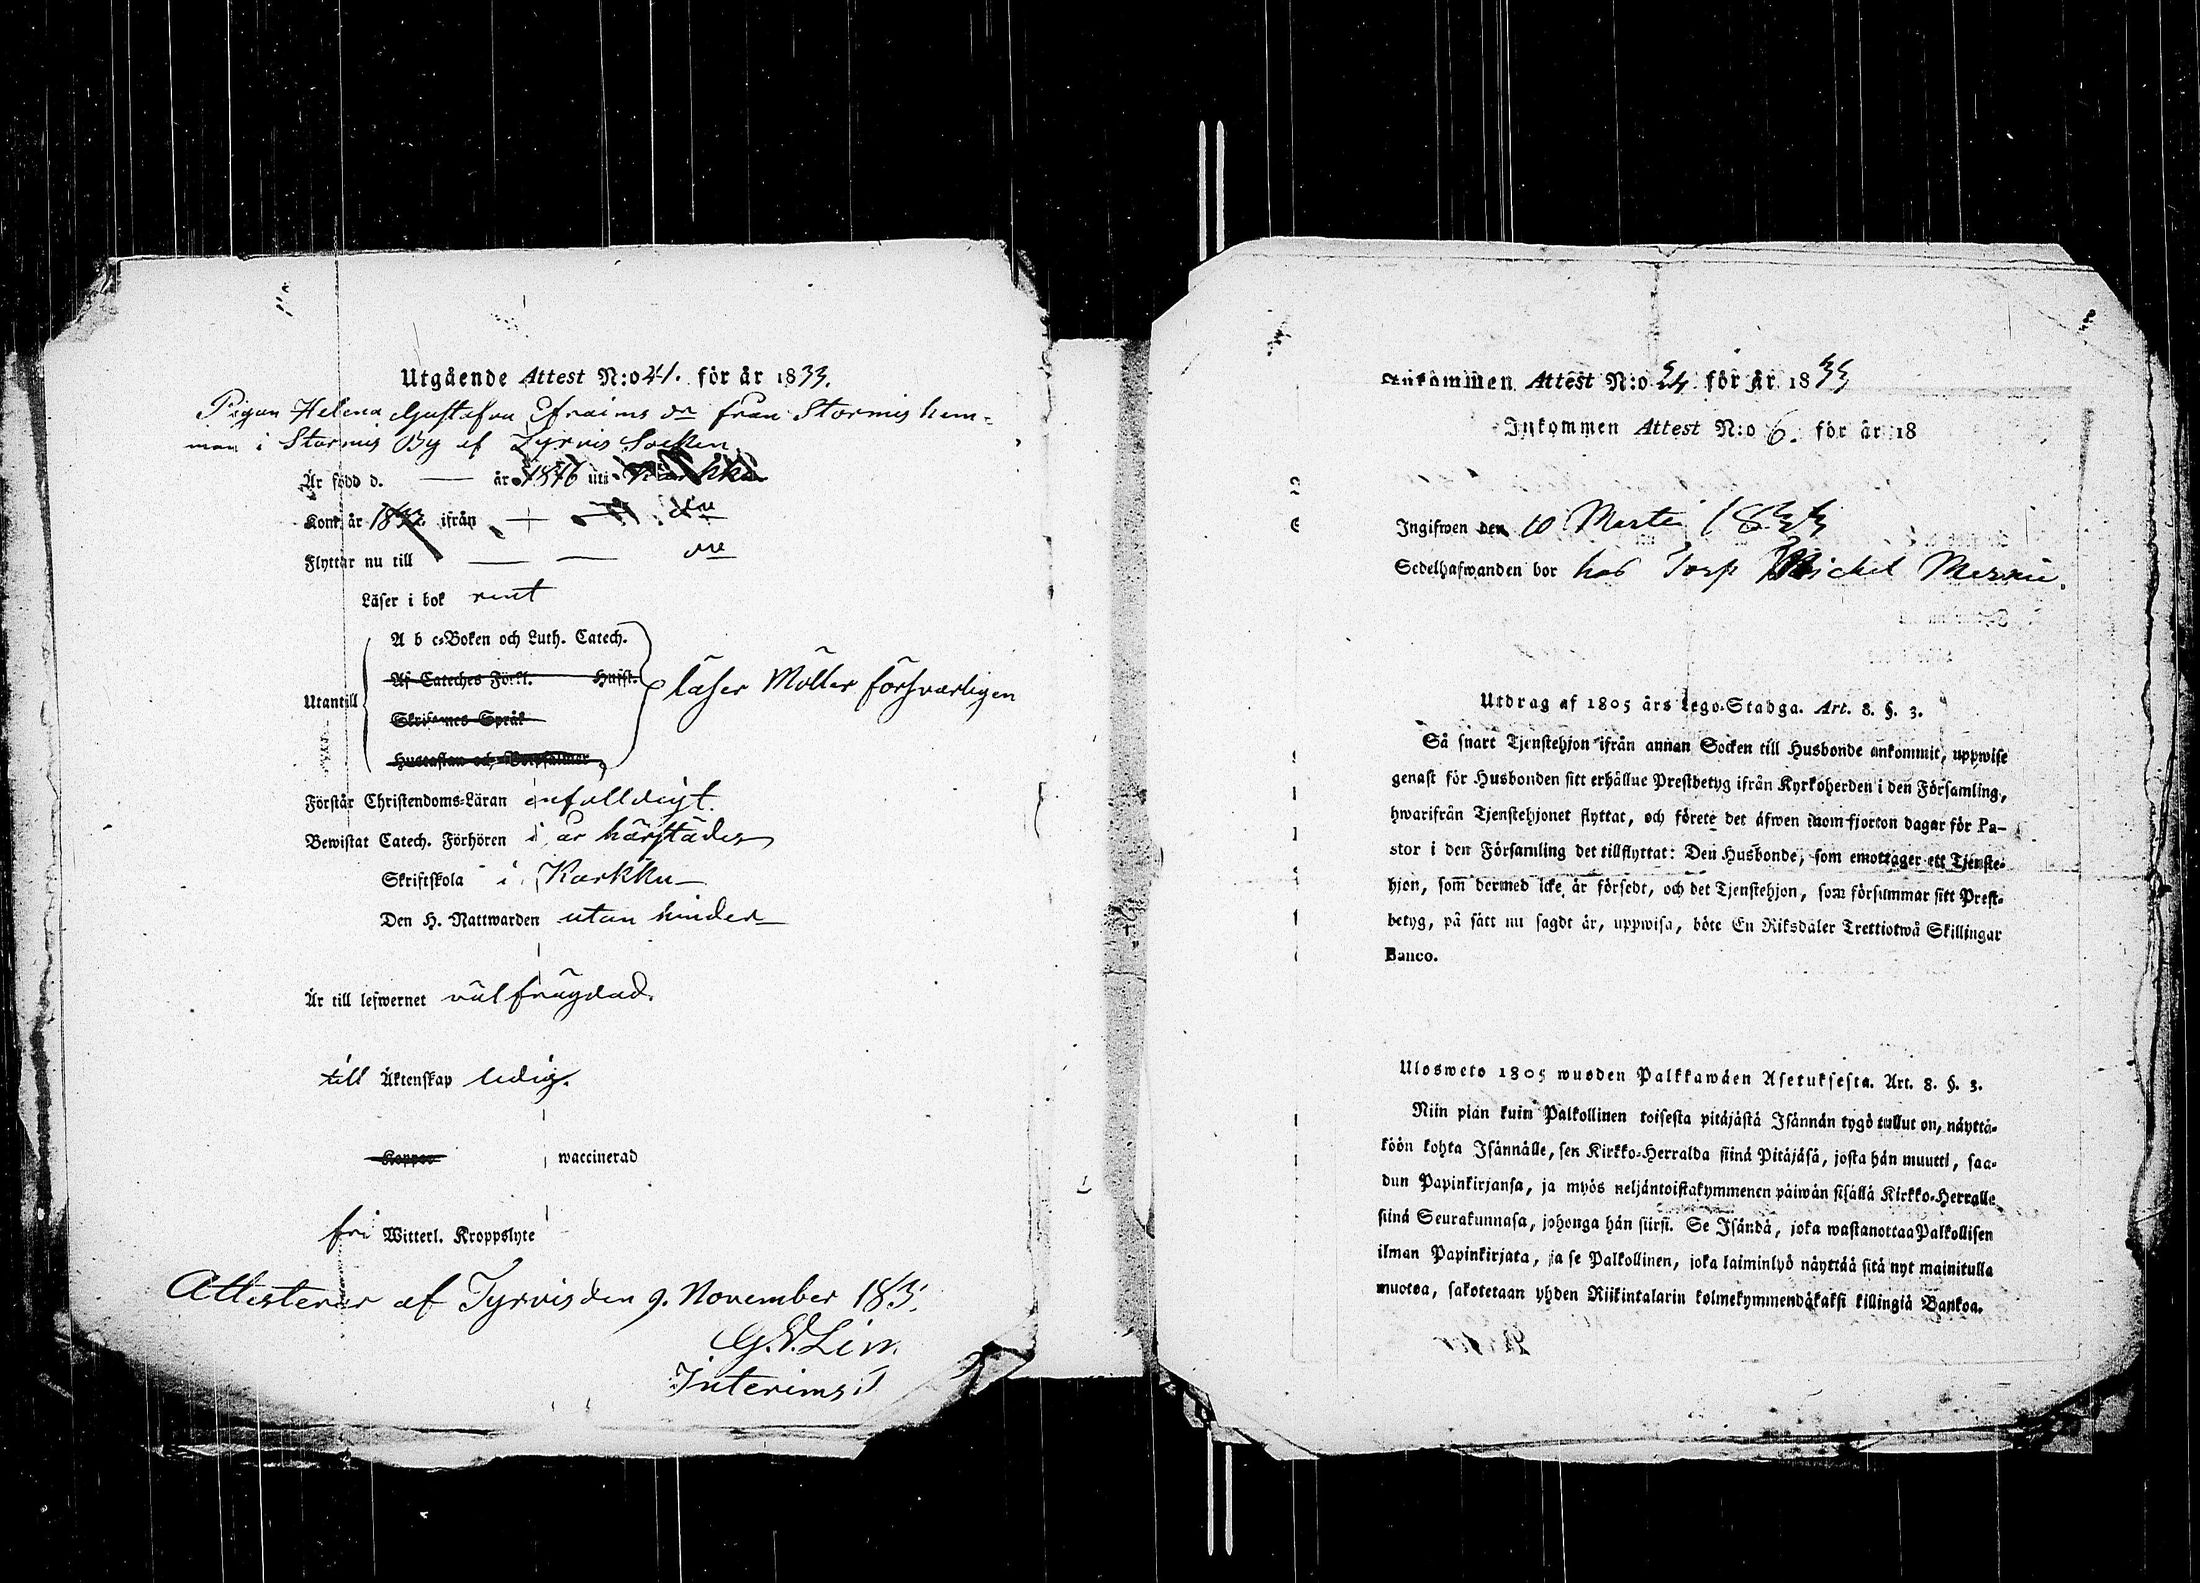 Utgående Attest N:o 41. för år 1833.
Pigan Helena Gustafva Efraims dr från Stormis hem-
man i Stormis By af Tyrvis Socken
Är född d. — år 1816 uti Karkku
Kom år ifrån — — dre
Flyttar nu till — — dre
Läser i bok rent
A b c-Boken och Luth. Catech.
Af Cateches Förkl. Husst.
läser Möller försvarligen
Utantill
Skriftenes Språk
Hustaflan och Botpsalmer
Förstår Christendoms-Läran enfalldigt.
Bewistat Catech. Förhören i år härstädes
Skriftskola i Karkku
Den H. Nattwarden utan hinder
Är till lefwernet välfrägdad.
till Äktenskap ledig.
Koppor waccinerad
fri Witterl. Kroppslyte
Attesterar af Tyrvis den 9. November 183
G. Lin
Interims
Ankommen Attest N:o 24 för år 1833
Inkommen Attest N:o 6. för år 18
Ingifwen den 10 Martii 1833
Sedelhafwanden bor hos Torp Michel
Utdrag af 1805 års Lego-Stadga. Art. 8. §. 3.
Så snart Tjenstehjon ifrån annan Socken till Husbonde ankommit, uppwise
genast för Husbonden sitt erhållne Prestbetyg ifrån Kyrkoherden i den Församling,
hwarifrån Tjenstehjonet flyttat, och förete det äfwen inom fjorton dagar för Pa-
stor i den Församling det tillflyttat: Den Husbonde, som emottager ett Tjenste-
hjon, som dermed icke är försedt, och det Tjenstehjon, som försummar sitt Prest-
betyg, på sätt nu sagdt är, uppwisa, böte En Riksdaler Trettiotwå Skillingar
Banco.
Ulosweto 1805 wuoden Palkkawäen Asetuksesta. Art. 8. §. 3.
Niin pian kuin Palkollinen toisesta pitäjästä Isännän tygö tullut on, näyttä-
köön kohta Isännälle, sen Kirkko-Herralda siinä Pitäjäsä, josta hän muutti, saa-
dun Papinkirjansa, ja myös neljäntoistakymmenen päiwän sisällä Kirkko-Herralle
siinä Seurakunnasa, johonga hän siirsi. Se Isändä, joka wastanottaa Palkollisen
ilman Papinkirjata, ja se Palkollinen, joka laiminlyö näyttää sitä nyt mainitulla
muotoa, sakotetaan yhden Riikintalarin kolmekymmendäkaksi killingiä Bankoa.